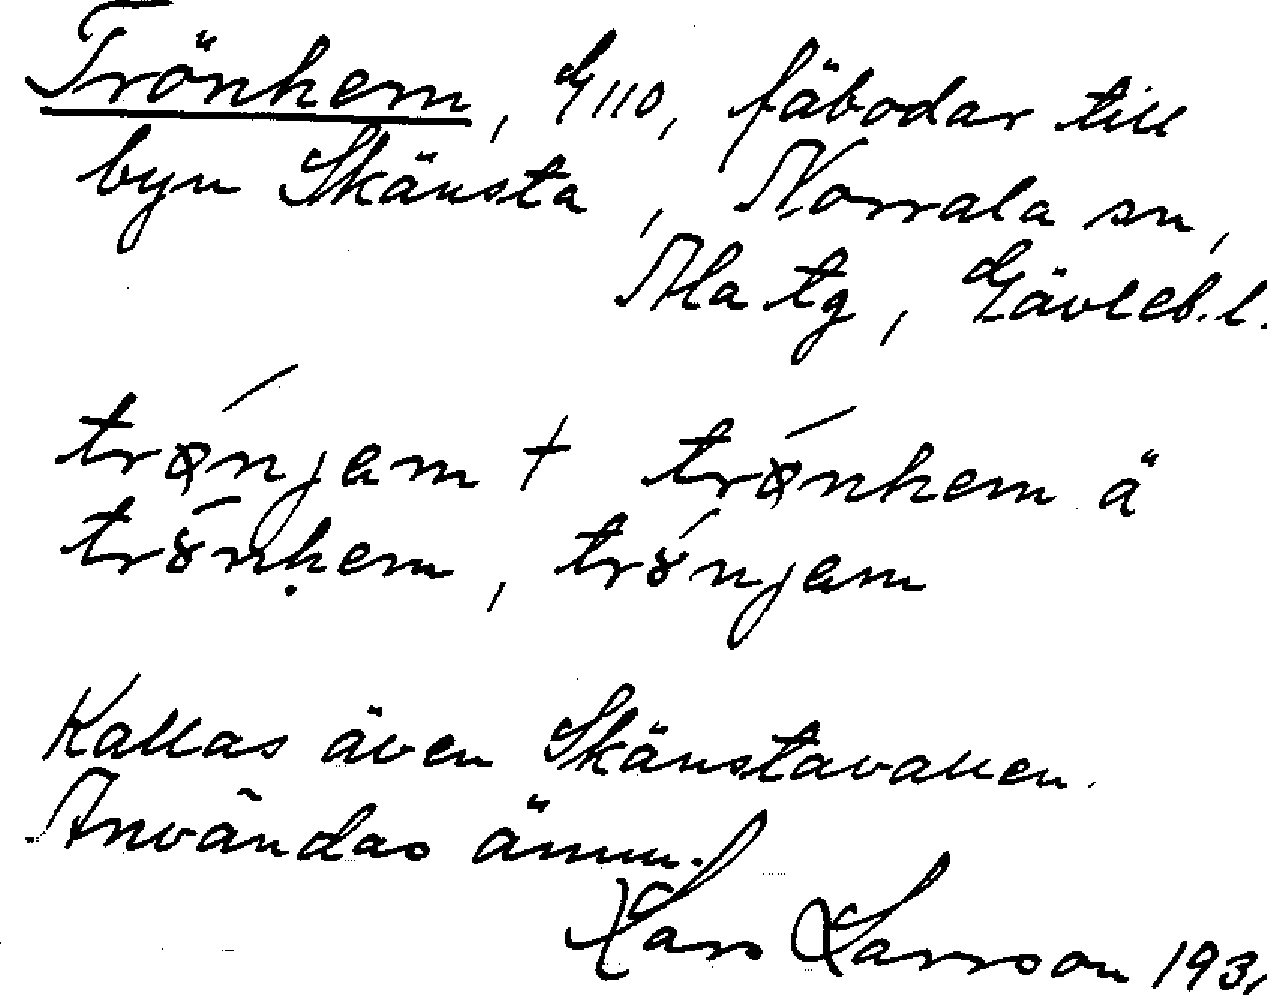 Trönhem, G 110, fäbodar till
byn Skänsta, Norrala sn,
Ala tg, Gävleb. l.
trǿnjam + trǿnhem ä
trǿnhem, trǿnjam
Kallas även Skänstavallen.
Användas ännu.
Lars Larsson 193